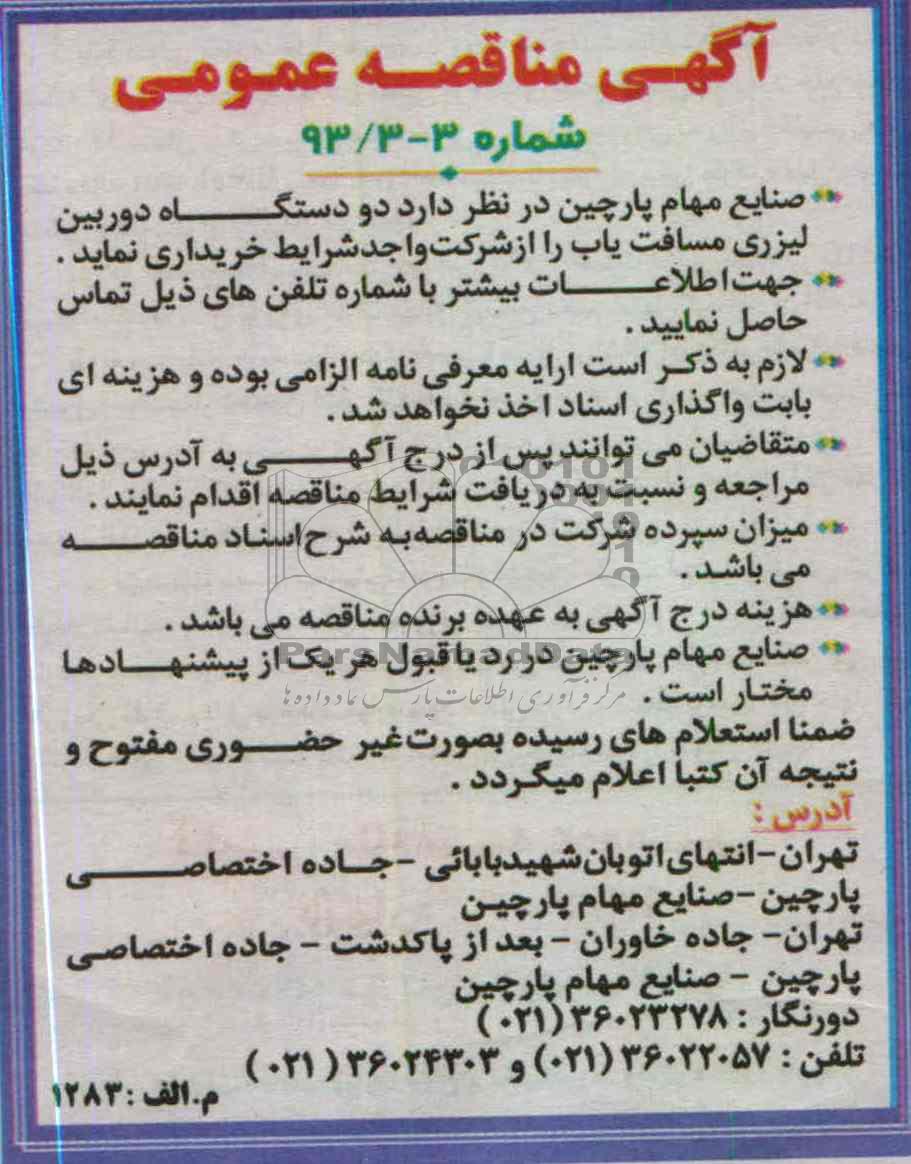 آگهی مناقصه عمومی
شماره ۳-۹۳/۳
صنایع مهام پارچین در نظر دارد دو دستگاه دوربین
لیزری مسافت یاب را ازشرکت‌واجدشرایط خریداری نماید .
جهت‌اطلاعات بیشتر با شماره تلفن های ذیل تماس
حاصل نمایید .
لازم به ذکر است ارایه معرفی نامه الزامی بوده و هزینه ای
بابت واگذاری اسناد اخذ نخواهد شد .
متقاضیان می توانند پس از درج آگهی به آدرس ذیل
مراجعه و نسبت به دریافت شرایط مناقصه اقدام نمایند .
میزان سپرده شرکت در مناقصه‌به شرح‌اسناد مناقصه
می باشد .
هزینه درج آگهی به عهده برنده مناقصه می باشد .
ParsNamadData
صنایع مهام پارچین در رد یا قبول هر یک از پیشنهادها
مختار است .
مرکز فرآوری اطلاعات پارس نماد داده ها
ضمنا استعلام های رسیده بصورت‌غیر حضوری مفتوح و
نتیجه آن کتبا اعلام میگردد .
آدرس :
تهران-انتهای‌اتوبان‌شهیدبابائی -جاده اختصاصی
پارچین -صنایع مهام پارچین
تهران- جاده خاوران - بعد از پاکدشت - جاده اختصاصی
پارچین - صنایع مهام پارچین
دورنگار : ۳۶۰۲۳۲۷۸ (۰۲۱)
تلفن : ۳۶۰۲۲۰۵۷ (۰۲۱) و ۳۶۰۲۴۳۰۳ (۰۲۱)
م.الف : ۱۲۸۳